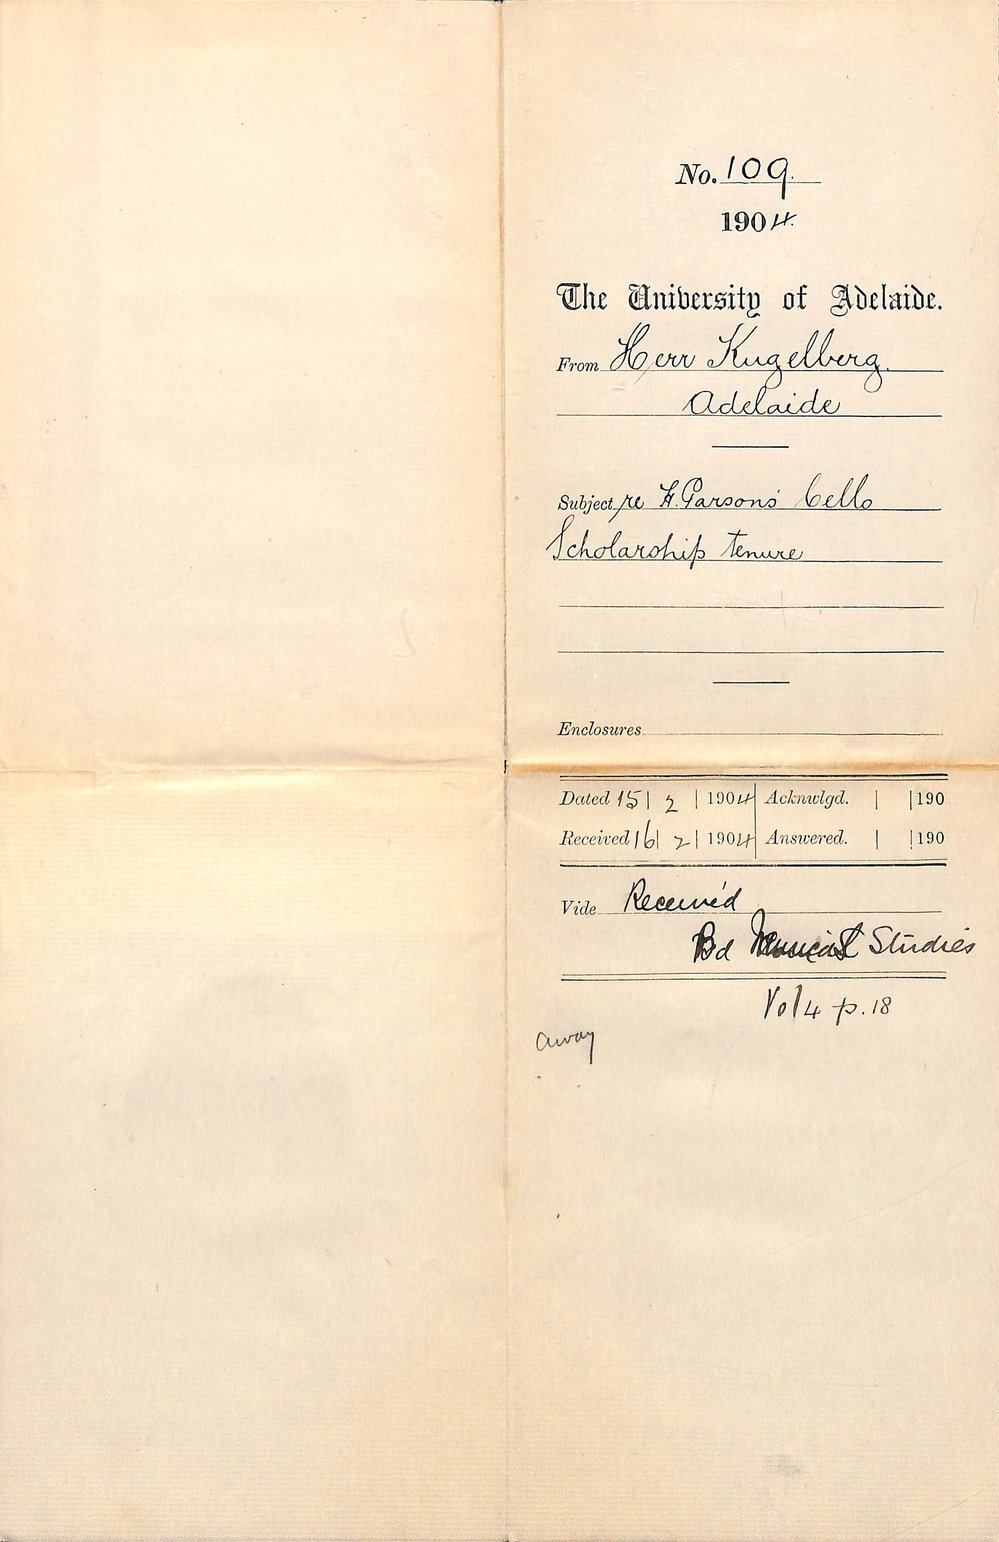 No. 109.
1904.
The University of Adelaide.
From Herr Kugelberg.
Adelaide
Subject re H. Parsons' Cello
Scholarship tenure
Enclosures
Dated 15 | 2 | 1904 Acknwlgd. | | 190
Received 16 | 2 | 1904 Answered. | | 190
Vide Received
Bd Musical Studies
Vol 4 p. 18
away